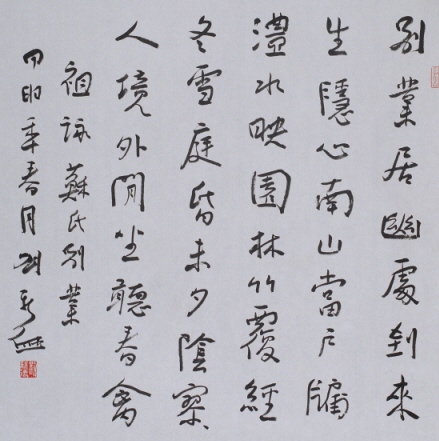 别業居幽處到來
生隱心南山當戶牖
澧水映園林竹覆經
冬雪庭昏未夕陰寥
人境外閒坐聽春禽
祖詠蘇氏别業
甲申年春月